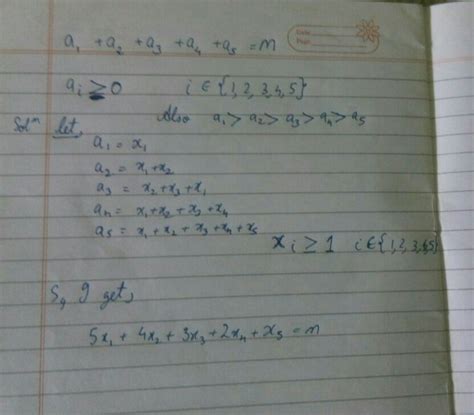 Date
Page
a₁ + a₂ + a₃ + a₄ + a₅ = n
aᵢ ≥ 0 i ∈ {1, 2, 3, 4, 5}
Also a₁ > a₂ > a₃ > a₄ > a₅
Solⁿ let,
a₁ = x₁
a₂ = x₁+x₂
a₃ = x₂+x₃+x₁
a₄ = x₁+x₂ + x₃ + x₄
a₅ = x₁ + x₂ + x₃ + x₄ + x₅
xᵢ ≥ 1 i ∈ {1, 2, 3, 4, 5}
So, I get,
5x₁ + 4x₂ + 3x₃ + 2x₄ + x₅ = n